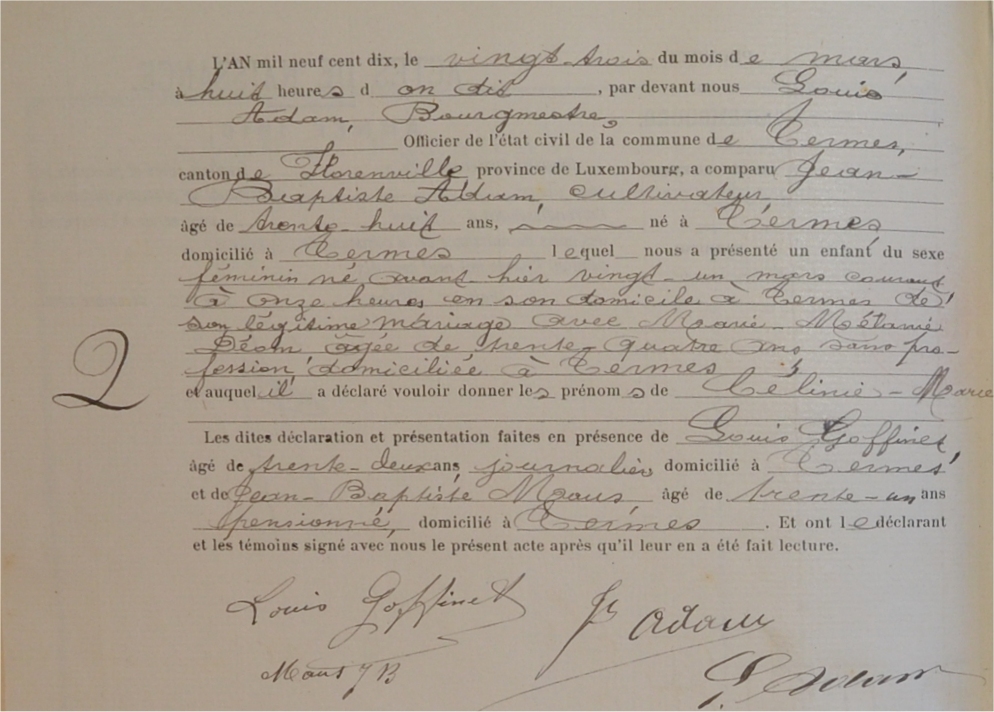 L'AN mil neuf cent dix, le vingt-trois du mois de mars,
à huit heures d on dit, par devant nous Louis
Adam, Bourgmestre,
Officier de l'état civil de la commune de Termes,
canton de Florenville province de Luxembourg, a comparu Jean-
Baptiste Adam, cultivateur,
âgé de trente-huit ans, né à Termes
domicilié à Termes lequel nous a présenté un enfant du sexe
féminin né avant hier vingt-un mars courant
à onze heures en son domicile à Termes de
son légitime mariage avec Marie-Mélanie
Déom âgée de trente-quatre ans sans pro-
fession domiciliée à Termes
2
et auquel il a déclaré vouloir donner les prénoms de Célinie-Marie
Les dites déclaration et présentation faites en présence de Louis Goffinet,
âgé de trente-deux ans journalier domicilié à Termes
et de Jean-Baptiste Maus âgé de trente-un ans
pensionné, domicilié à Termes. Et ont le déclarant
et les témoins signé avec nous le présent acte après qu'il leur en a été fait lecture.
Louis Goffinet
Adam
Maus JB
Adam